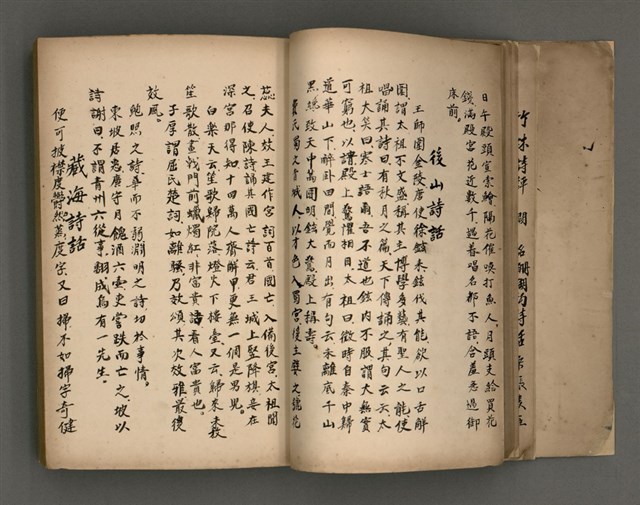 日午殿頭宣索鱠隔花催喚打魚人月頭支給買花
錢滿殿宮花近數千遇着唱名都不語含羞急過御
床前
後山詩話
王師圍金陵唐使徐鉉來鉉伐其能欲以口舌解
圍謂太祖不文盛稱其主博學多藝有聖人之能使
唱誦其詩曰有秋月之篇天下傳誦之其句云云太
祖大笑曰寒士語爾吾不道也鉉內不服謂大無實
可窮也以請殿上驚懼相目太祖曰微時自秦中歸
道華山下醉卧田間覺而月出有句云未離底千山
黑纔致天中萬國明鉉大驚殿上稱壽
費氏蜀之青城人以才色入蜀宮後主嬖之號花
蕊夫人效王建作宮詞百首國亡入備後宮太祖聞
之召使陳詩誦其國亡詩云君王城上竪降旗妾在
深宮那得知十四萬人齊解甲更無一個是男兒
白樂天云笙歌歸院落燈火下樓臺又云歸來未放
笙歌散畫戟門前蠟燭紅非富貴語看人富貴也
子厚謂屈氏楚詞如離騷乃效頌其次效雅最後
效風
鮑照之詩華而不弱淵明之詩切於事情
東坡居惠廣守月餽酒六壺吏嘗跌而亡之坡以
詩謝曰不謂青州六從事翻成烏有一先生
藏海詩話
便可披襟度鬱然蒸度字又曰掃不如掃字奇健